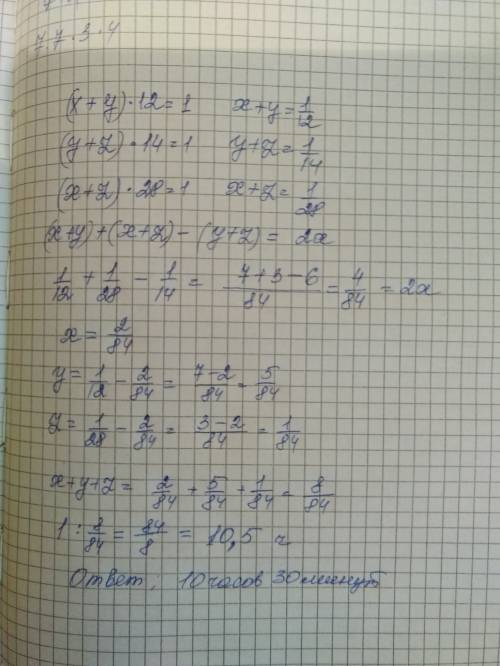 7.7.3.4
(x+y)·12=1 x+y=1/12
(y+z)·14=1 y+z=1/14
(x+z)·28=1 x+z=1/28
(x+y)+(x+z)-(y+z)= 2x
1/12+1/28-1/14= (7+3-6)/84=4/84=2x
x=2/84
y=1/12-2/84=(7-2)/84=5/84
z=1/28-2/84=(3-2)/84=1/84
x+y+z= 2/84+5/84+1/84=8/84
1:8/84=84/8= 10,5 ч
Ответ: 10 часов 30 минут